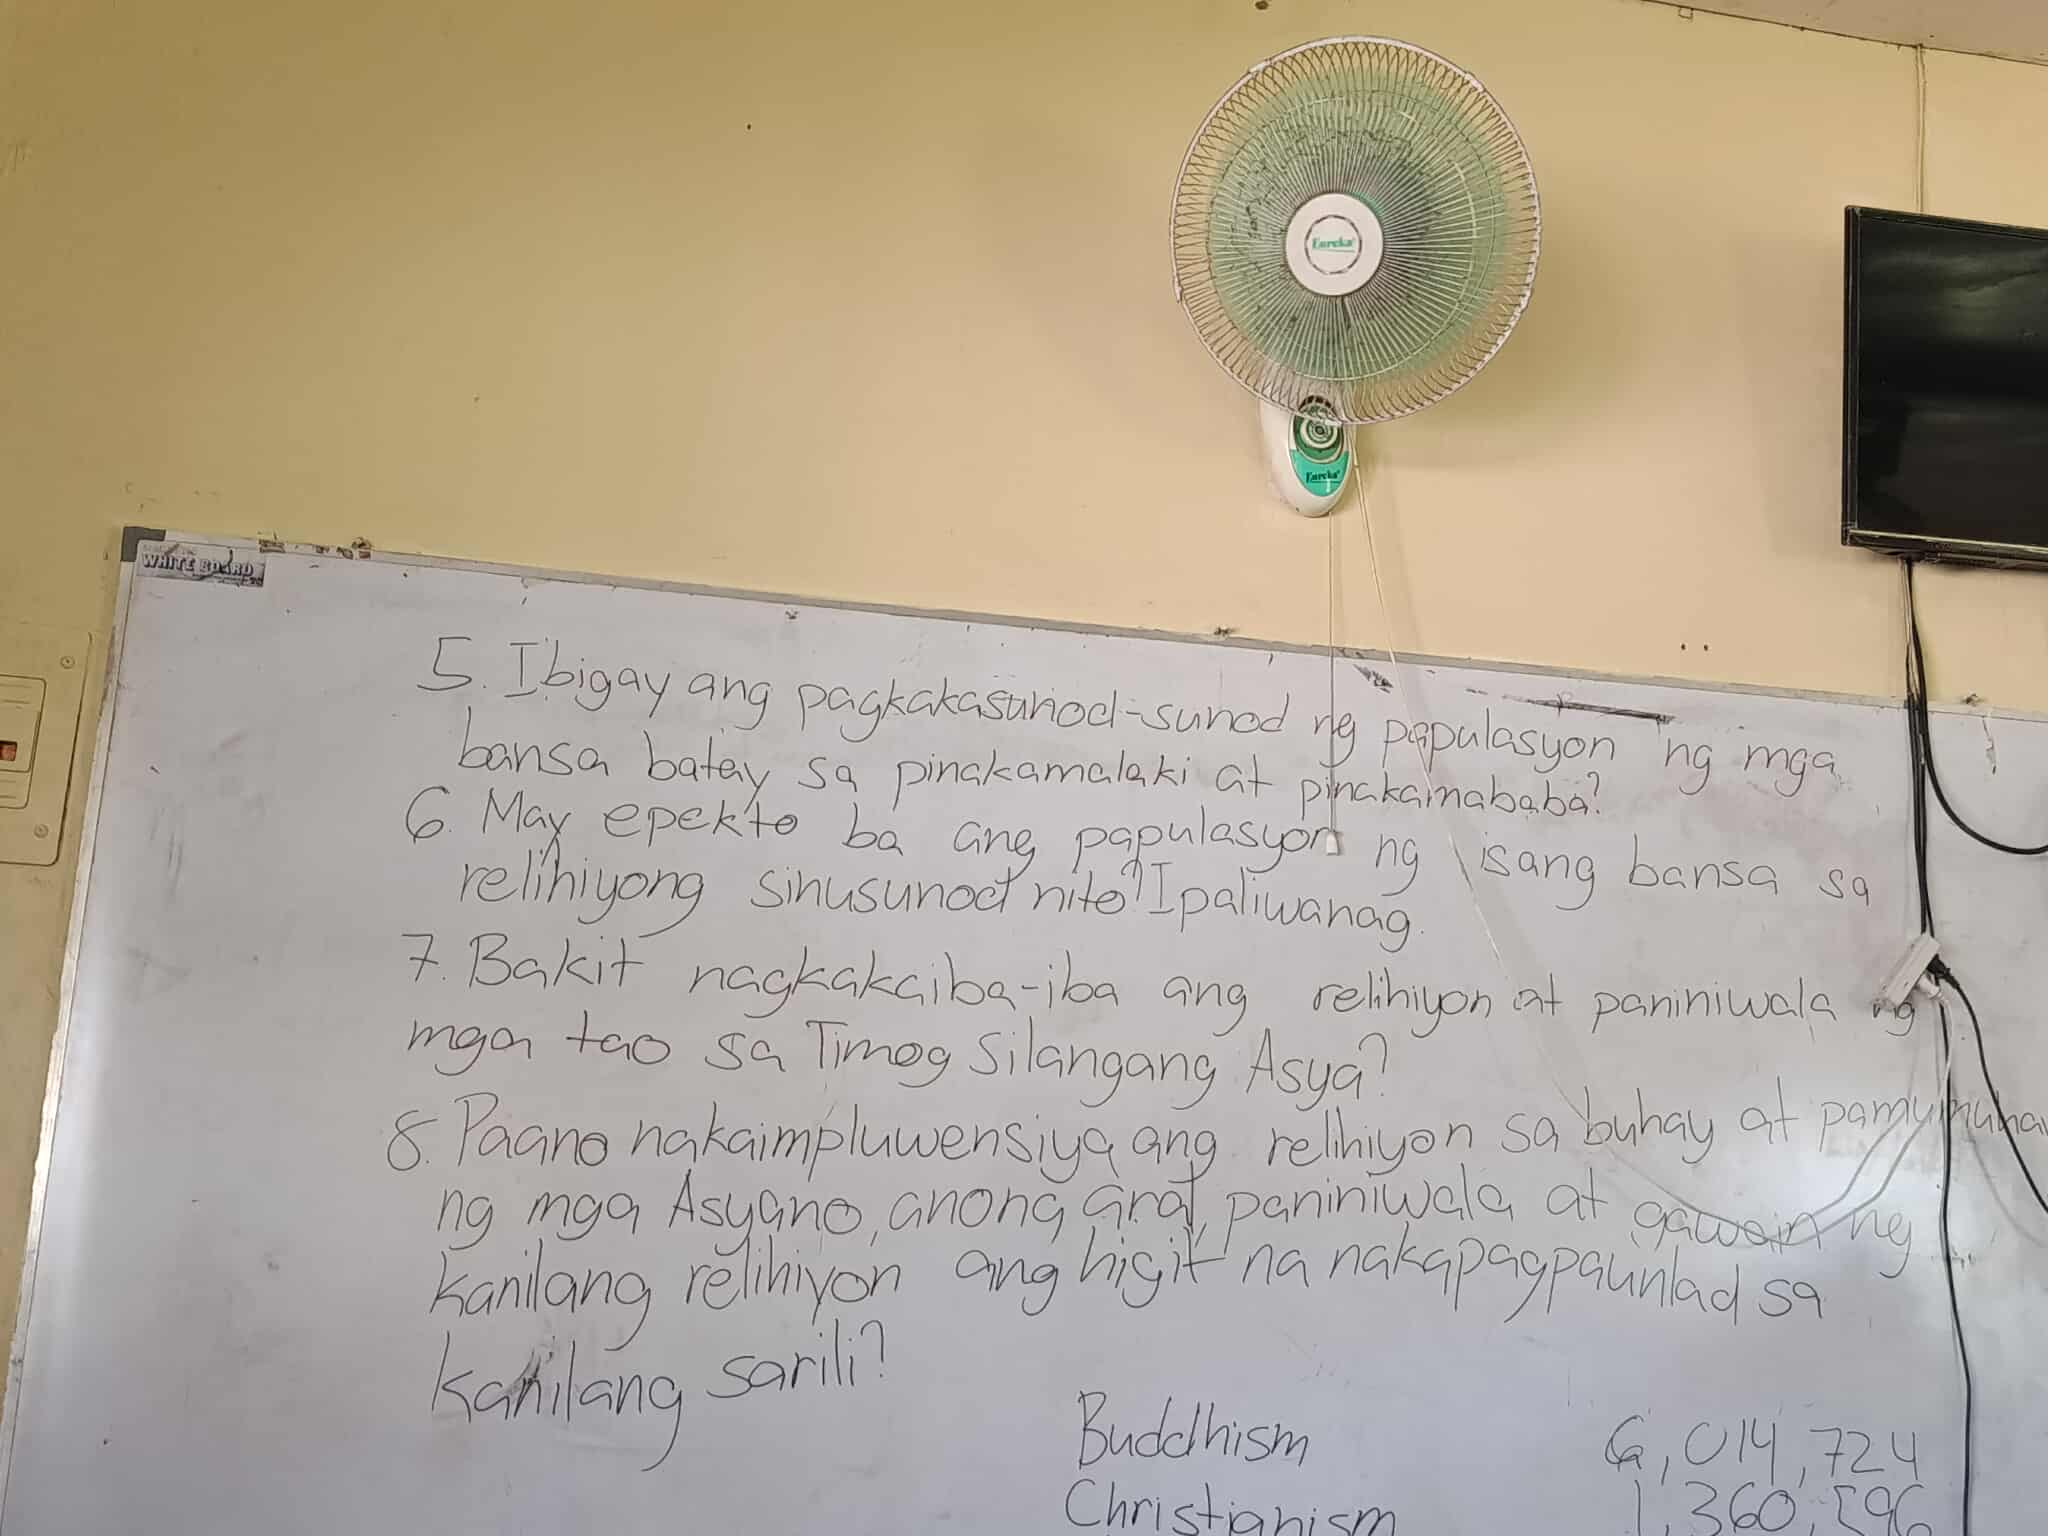 Eureka
Eureka
WHITE BOARD
5. Ibigay ang pagkakasunod-sunod ng papulasyon ng mga
bansa batay sa pinakamalaki at pinakamababa?
6. May epekto ba ang papulasyon ng isang bansa sa
relihiyong sinusunod nito? Ipaliwanag.
7. Bakit nagkakaiba-iba ang relihiyon at paniniwala ng
mga tao sa Timog Silangang Asya?
8. Paano nakaimpluwensiya ang relihiyon sa buhay at
ng mga Asyano, anong aral, paniniwala at gawain ng
kanilang relihiyon ang higit na nakapagpaunlad sa
kanilang sarili?
Buddhism 6,014,724
Christianism 1,360,596